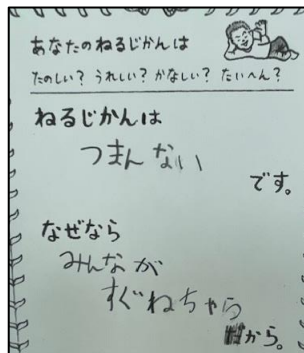 あなたのねるじかんは
たのしい？うれしい？かなしい？たいへん？
ねるじかんは
つまんない
です。
なぜなら
みんなが
すぐねちゃら
から。